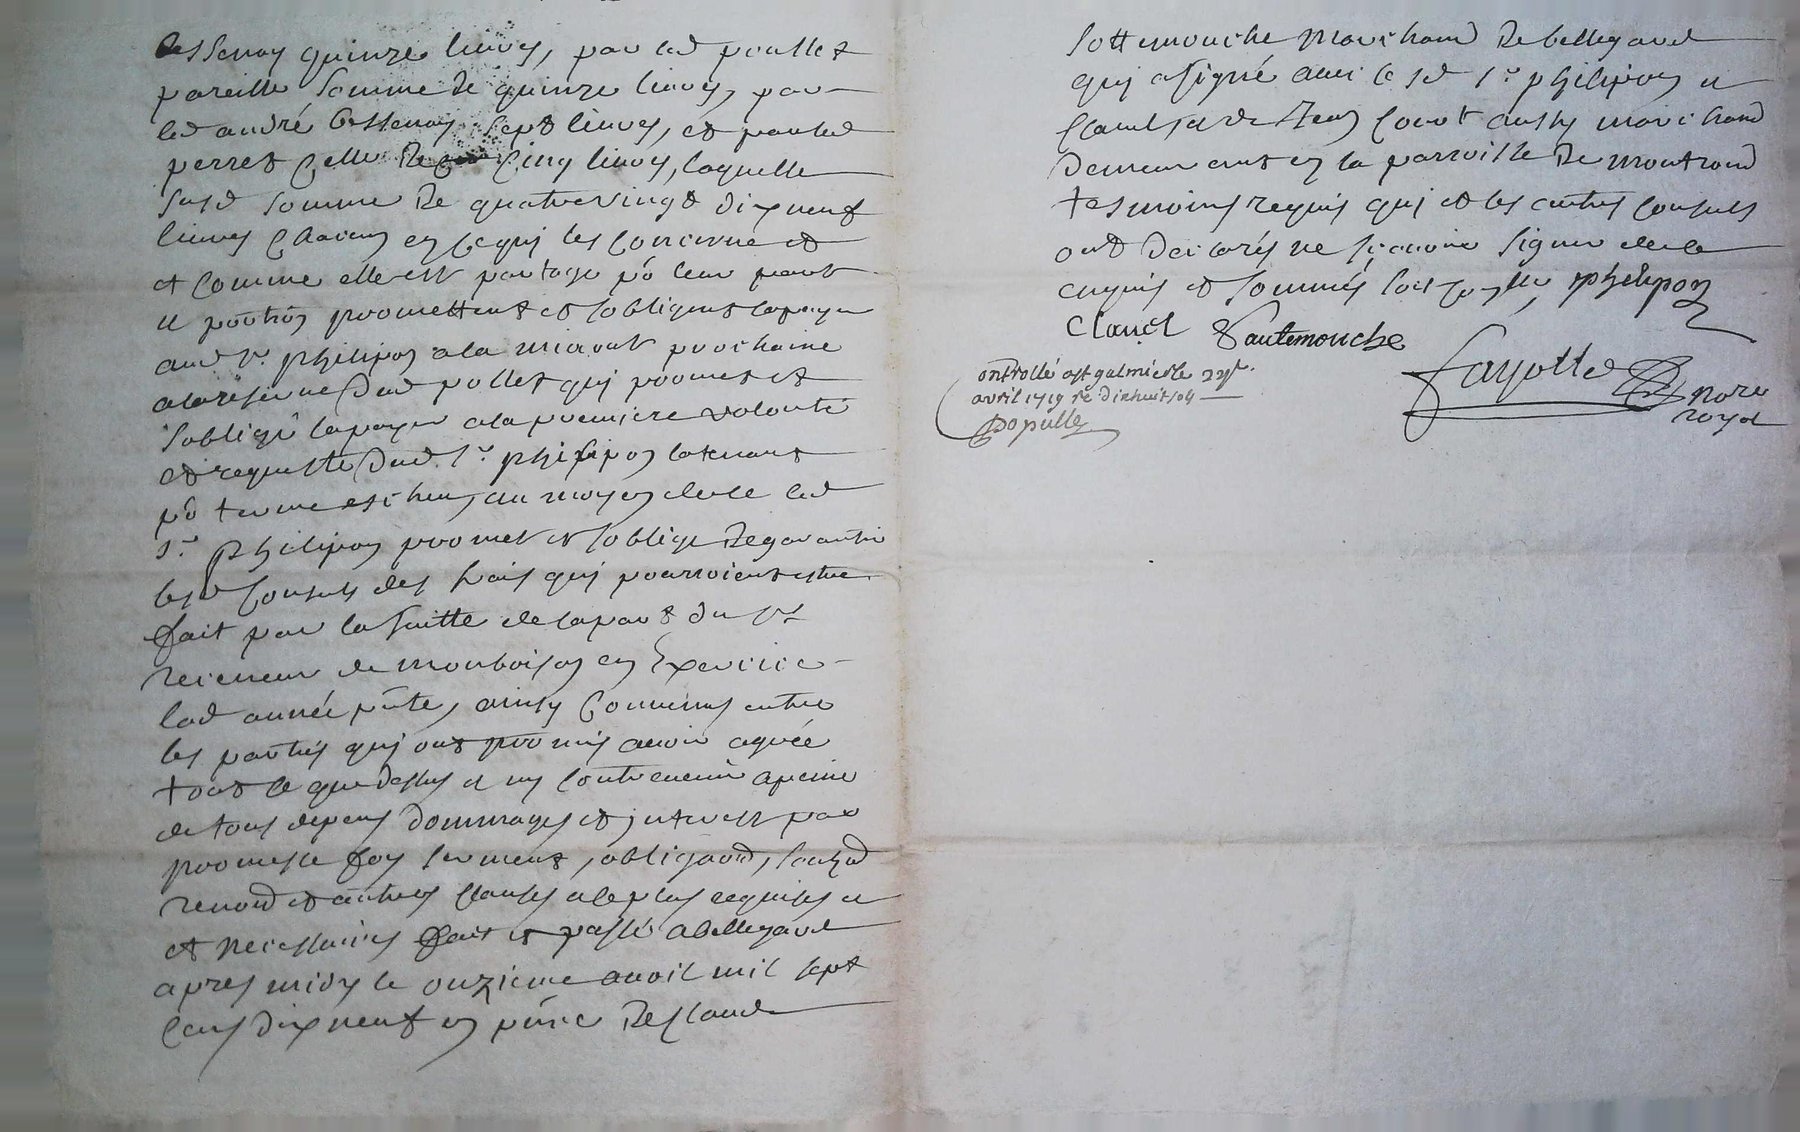 quinze livres, par led pollet
pareille somme de quinze livres, par
led andré Bessenay sept livres, et par led
perret celle de cinq livres, laquelle
susd somme de quatrevingt dixneuf
livres chacun en ce qui les concerne et
et comme elle est partagé po leur part
et portion promettent et sobligent la payer
aud sr. philipon a la miaoust prochaine
a la reserve dud pollet qui promet et
soblige la payer a la premiere volonté
et requeste dud sr. philipon
po terme escheu, au moyen de ce led
sr. philipon promet et soblige de garantir
lesd consuls des frais qui pourroient estre
fait par la suitte de la part du sr
receveur de monbrison en Exercice
lad année pnte, ainsy convenus entre
les parties qui ont promis avoir agrée
tout ce que dessus et ny contrevenir a peine
de tous depens dommages et interest par
promesse foy serment, obligaon,
renon et autres clauses a ce plus requises et
et necessaires fait et passé a bellegarde
apres midy le onzieme avril mil sept
cens dixneuf en pnce de claude
sottemouche marchand de bellegarde
qui a signé avec le sd sr. philipon et
marchand
demeurant en la parroisse de montrond
tesmoins requis qui et les autres consuls
ont declarés ne scavoir signer de ce
enquis et sommés philipon
Clauel Sautemouche
ontrollé a st galmier le 22e.
avril 1719 re dixhuit sols
Dopulle
fayolle nore
royal